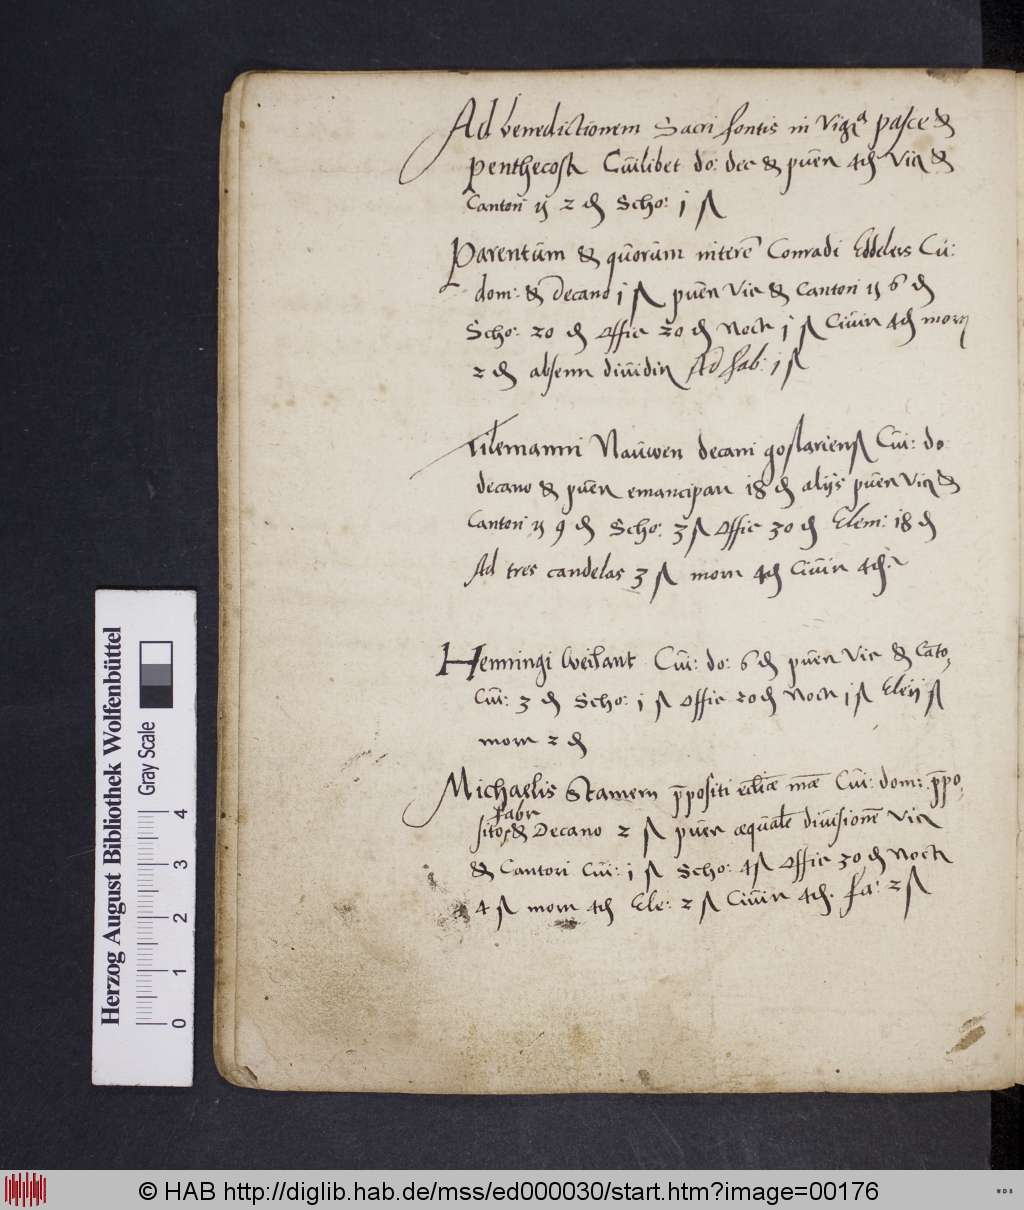 Ad benedictionem Sacri fontis in Vigᵃ pasce &
penthecoste Cuilibet do: dec & puer 4 ₰ Vic &
Cantori ij 2 ₰ Scho: j ß
Parentum & quorum interē Conradi Eddelers Cui:
dom: & Decano j ß puer Vic & Cantori ij 6 ₰
Scho: 20 ₰ Offic 20 ₰ Noct j ß Civin 4 ₰ morn
2 ₰ absenn dividin Ad fab: j ß
Tilemanni Nauwen decani goslariens Cui: do
decano & puer emancipan 18 ₰ alijs puer Vic &
Cantori ij 9 ₰ Scho: 3 ß Offic 30 ₰ Elem: 18 ₰
Ad tres candelas 3 ß morn 4 ₰ Civin 4 ₰
Henningi Weisant Cui: do: 6 ₰ puer Vic & Canto
Cui: 3 ₰ Scho: j ß Offic 20 ₰ Noct j ß Ele ij ß
morn 2 ₰
Michaelis Stamern p̄positi eccliæ mæ Cui: dom: p̄po
fabr
sito & Decano 2 ß puer æquale divisionē Vic
& Cantori Cui: 1 ß Scho: 4 ß Offic 30 ₰ Noct
4 ß morn 4 ₰ Ele: 2 ß Civin 4 ₰. fa: 2 ß
Herzog August Bibliothek Wolfenbüttel
Gray Scale
0 1 2 3 4
© HAB http://diglib.hab.de/mss/ed000030/start.htm?image=00176